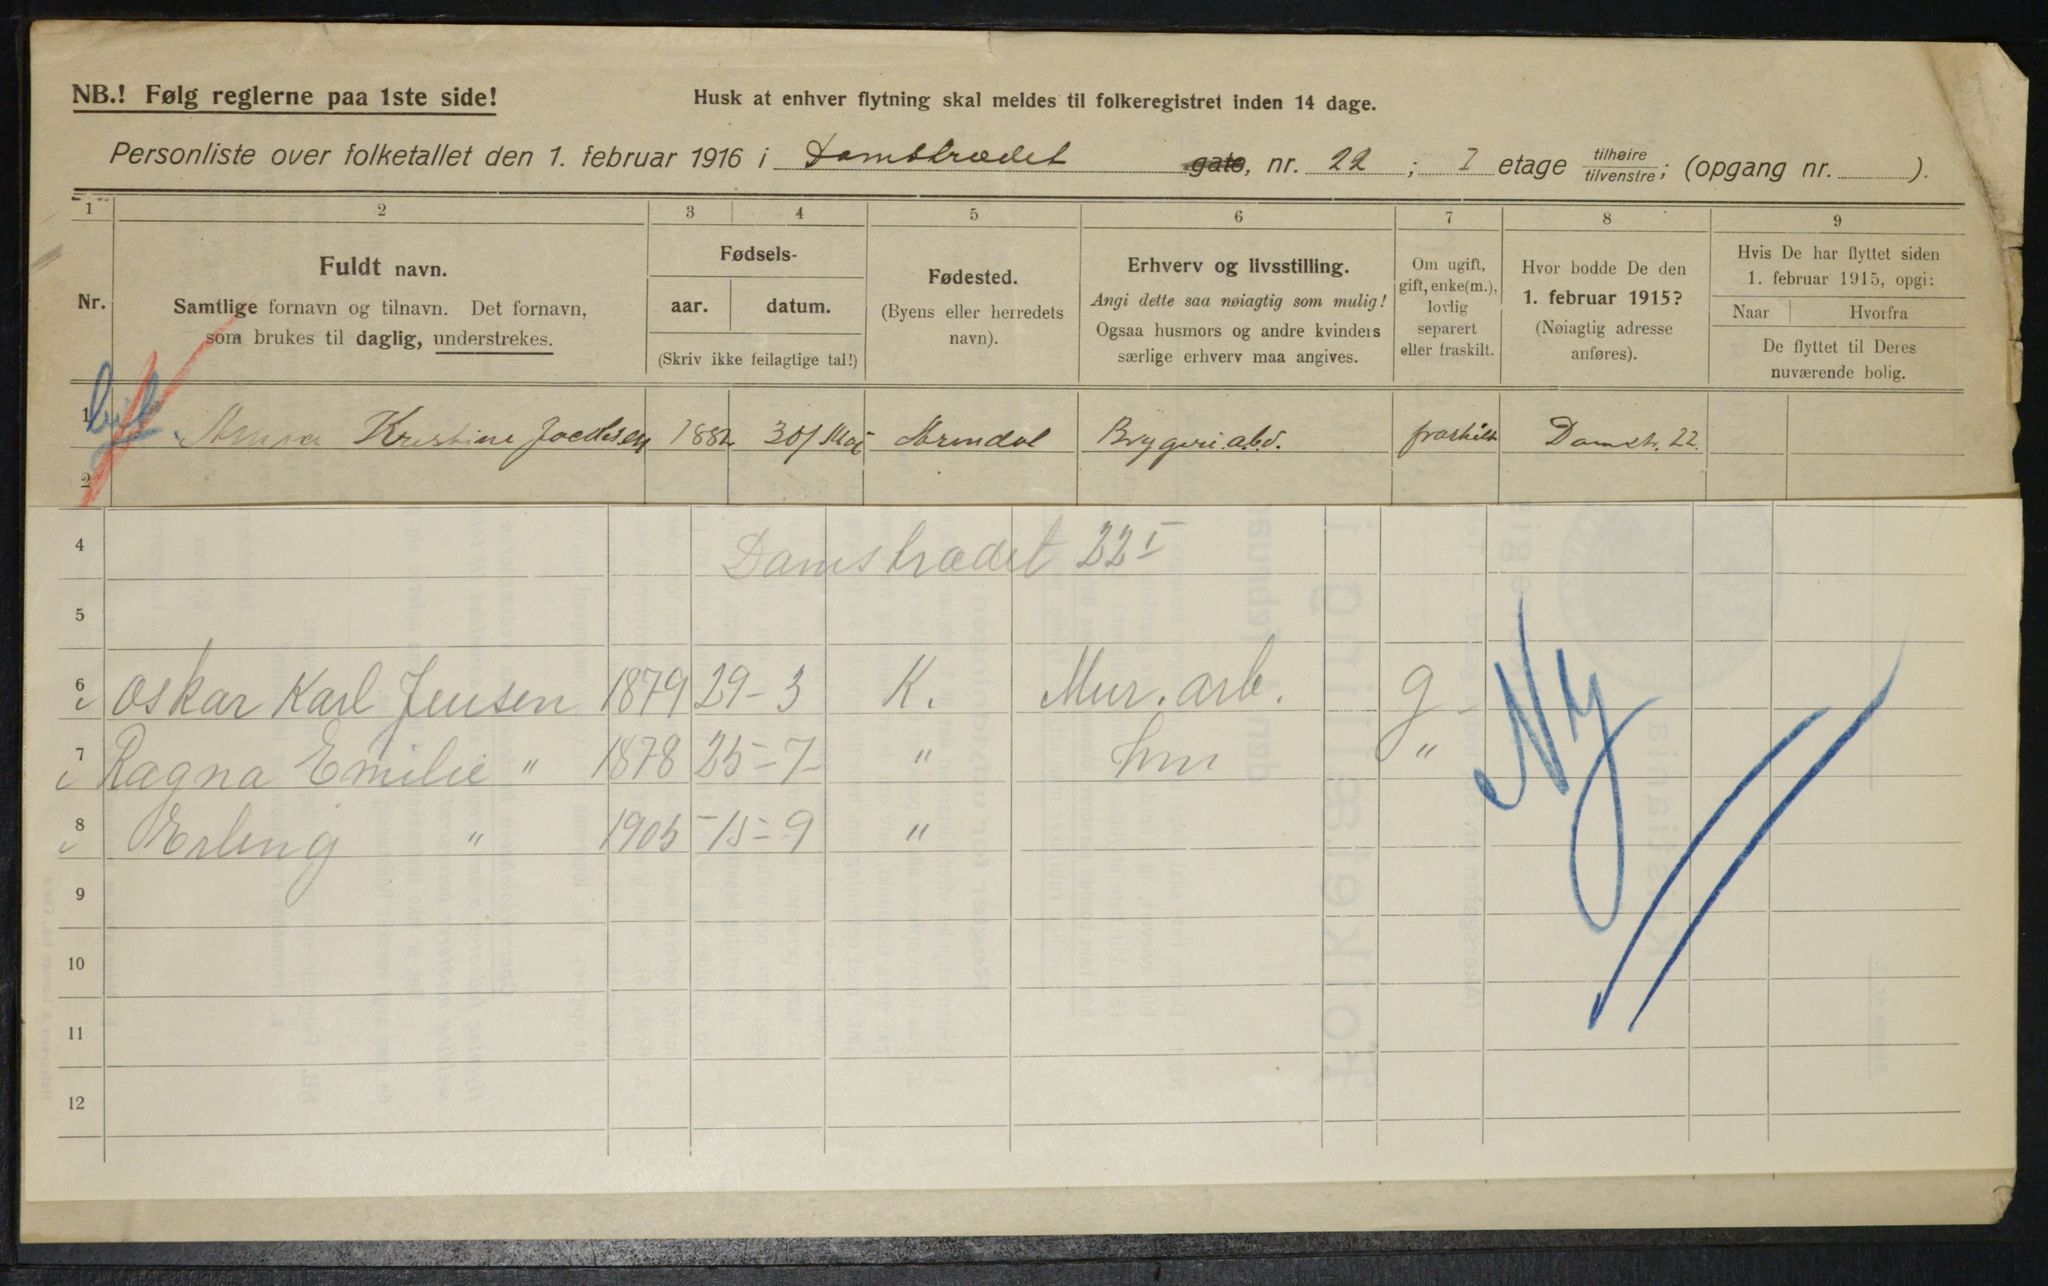 NB.! Følg reglerne paa 1ste side!
Husk at enhver flytning skal meldes til folkeregistret inden 14 dage.
Personliste over folketallet den 1. februar 1916 i Damstrædet gate, nr. 22; I etage tilhøire/tilvenstre; (opgang nr. ).
1 2 3 4 5 6 7 8 9
Nr.
Fuldt navn.
Samtlige fornavn og tilnavn. Det fornavn,
som brukes til daglig, understrekes.
Fødsels-
aar. datum.
(Skriv ikke feilagtige tal!)
Fødested.
(Byens eller herredets
navn).
Erhverv og livsstilling.
Angi dette saa nøiagtig som mulig!
Ogsaa husmors og andre kvinders
særlige erhverv maa angives.
Om ugift,
gift, enke(m.),
lovlig
separert
eller fraskilt.
Hvor bodde De den
1. februar 1915?
(Nøiagtig adresse
anføres).
Hvis De har flyttet siden
1. februar 1915, opgi:
Naar Hvorfra
De flyttet til Deres
nuværende bolig.
1 Kristine 1882 30/ Mai Arendal Bryggeri.arb. fraskilt Damstr. 22.
2
4 Damstrædet 22 I
5
6 Oskar Karl Jensen 1879 29-3 K. Mur. arb. g
7 Ragna Emilie " 1878 25-7 " hm "
8 Erling " 1905 15-9 "
Ny
9
10
11
12